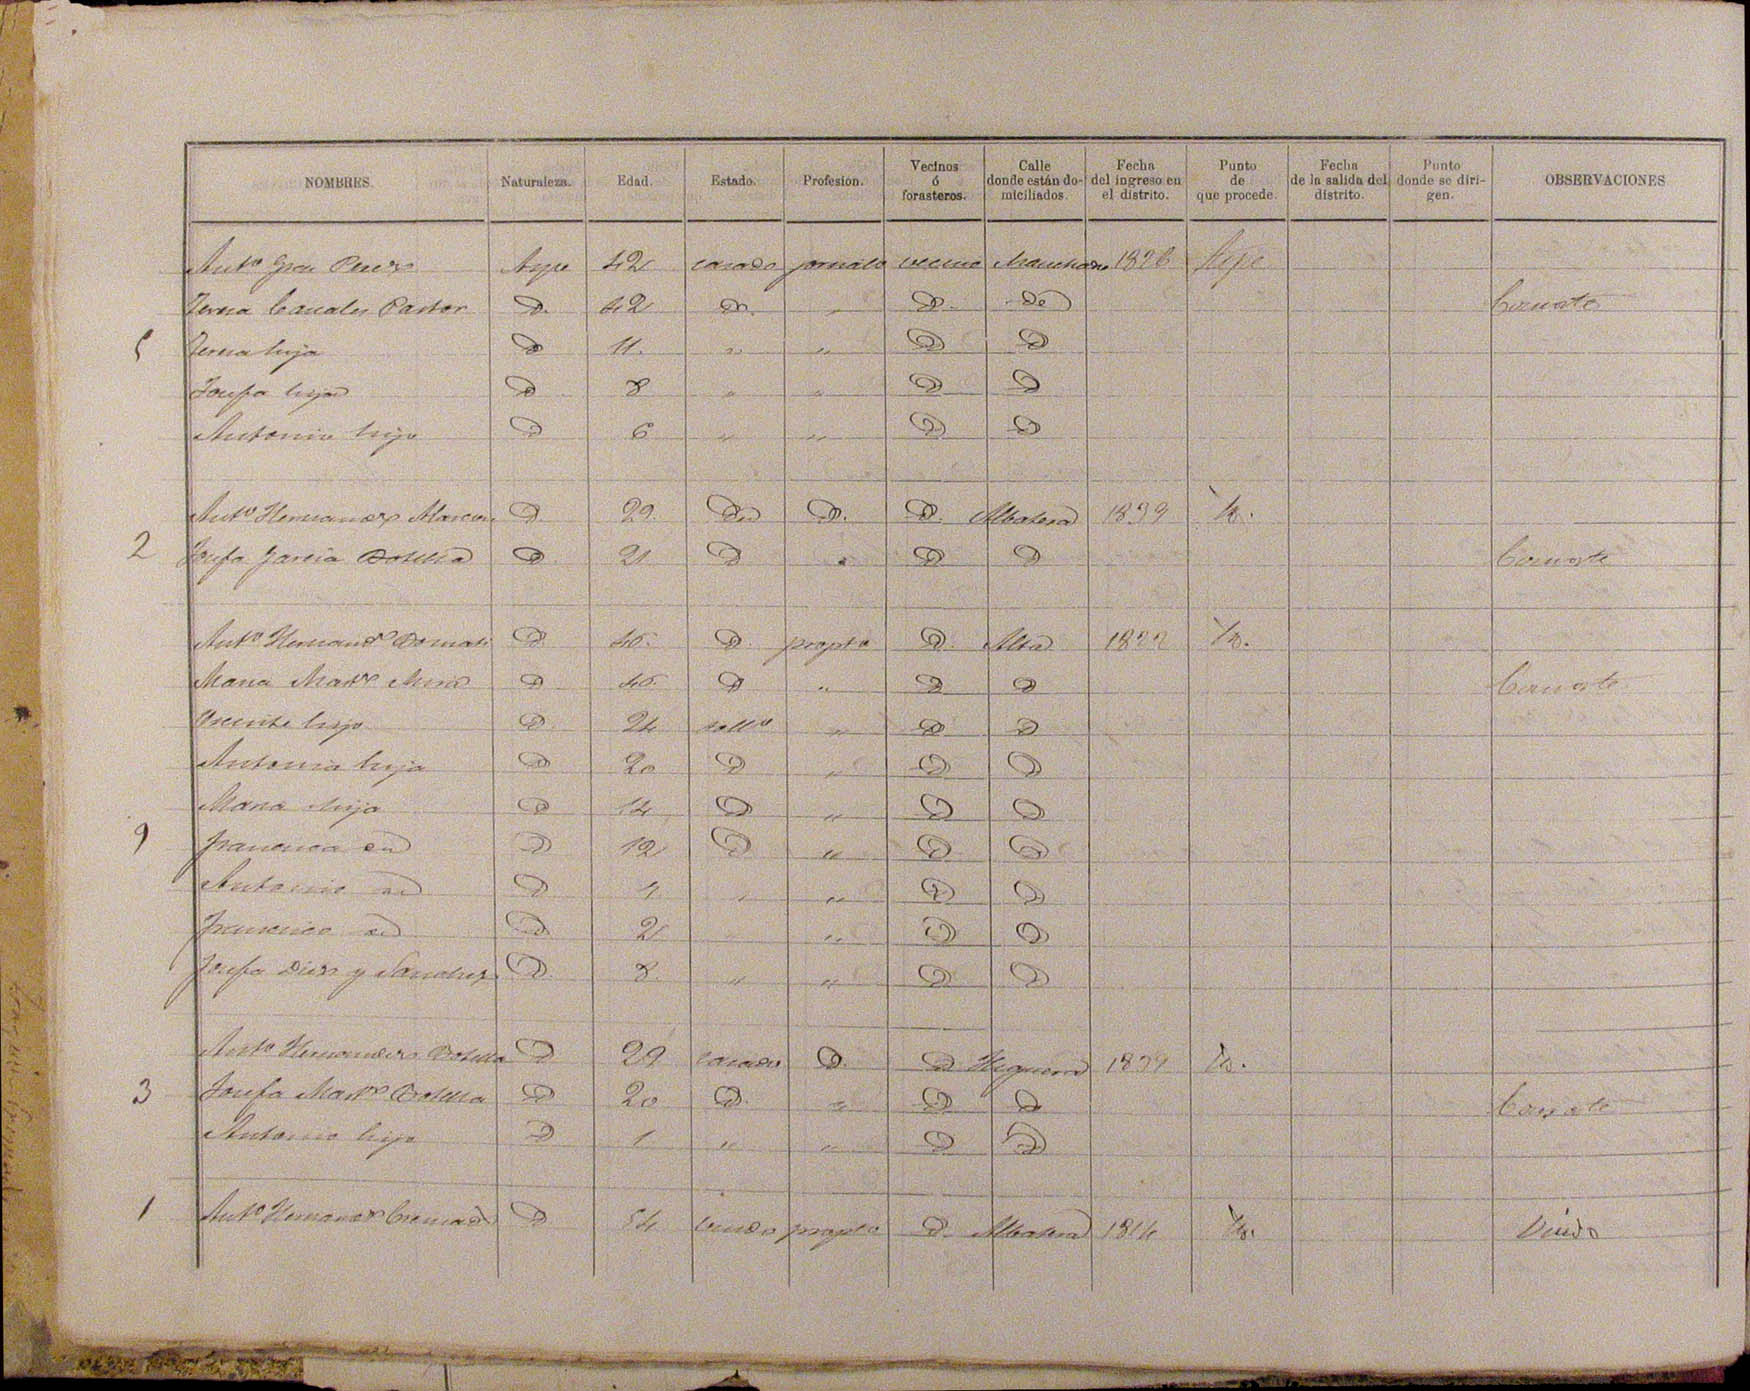 NOMBRES. Naturaleza. Edad. Estado. Profesion. Vecinos ó forasteros. Calle donde están domiciliados. Fecha del ingreso en el distrito. Punto de que procede. Fecha de la salida del distrito. Punto donde se dirigen. OBSERVACIONES
Anto Grau Perez Aspe 42 casado jornalo vecino 1826 Aspe
Teresa Canales Pastor D. 42 D. " D. D Consorte
5 Teresa hija D 11 " " D D
Josefa hija D 8 " " D D
Antonio hijo D 6 " " D D
Anto Hernandez Alarcon D 29 D D. D. Albatera 1839 D.
2 Josefa Garcia Botella D. 21 D " D D Consorte
Anto Hernandz D D. propto D. Alta 1822 D.
Maria Martz Miro D D " D D Consorte
Vicente hijo D. 24 soltro " D D
Antonia hija D 20 D " D D
Maria hija D 14 D " D D
9 Francisca D 12 D " D D
Antonio D " " D D
Francisco D 2 " D D
Josefa Diez y Sanchez D. 8 " " D D
Anto Hernandez Botella D 29 casado D. D Higuera 1839 D.
3 Josefa Martz Botella D 20 D. " D D Consorte
Antonio hijo D 1 " " D D
1 Anto Hernandz Cremades D 54 viudo propto D. Albatera 1814 D. Viudo